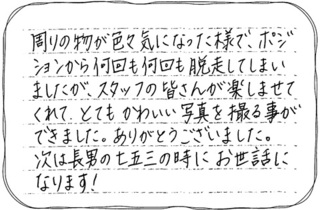 周りの物が色々気になった様で、ポジ
ションから何回も何回も脱走してしまい
ましたが、スタッフの皆さんが楽しませて
くれて、とても かわいい写真を撮る事が
できました。ありがとうございました。
次は長男の七五三の時に お世話に
なります!